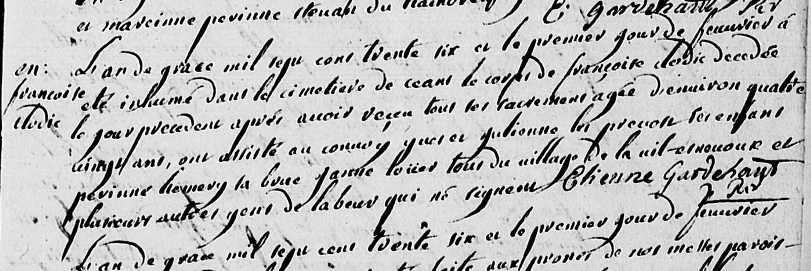 et marcinne perinne
E. Gardehaut
en: L'an de grace mil sept cens trente six et le premier jour de feuvrier á
francoise eté inhumé dans le cimetiere de ceans le corps de francoise clodic decedée
clodic le jour precedent après avoir reçeu tous ses sacremens agée d'environ quatre
vingt ans, ont assisté au convoÿ yves et julienne les prevost ses enfans
perinne hemery sa brue janne tous du village de la vil et
plusieurs autres gens de labeur qui né signent Etienne Gardehaut
L'an de grace mil sept cens trente six et le premier jour de feuvrier
aux prones de nos messes parois-